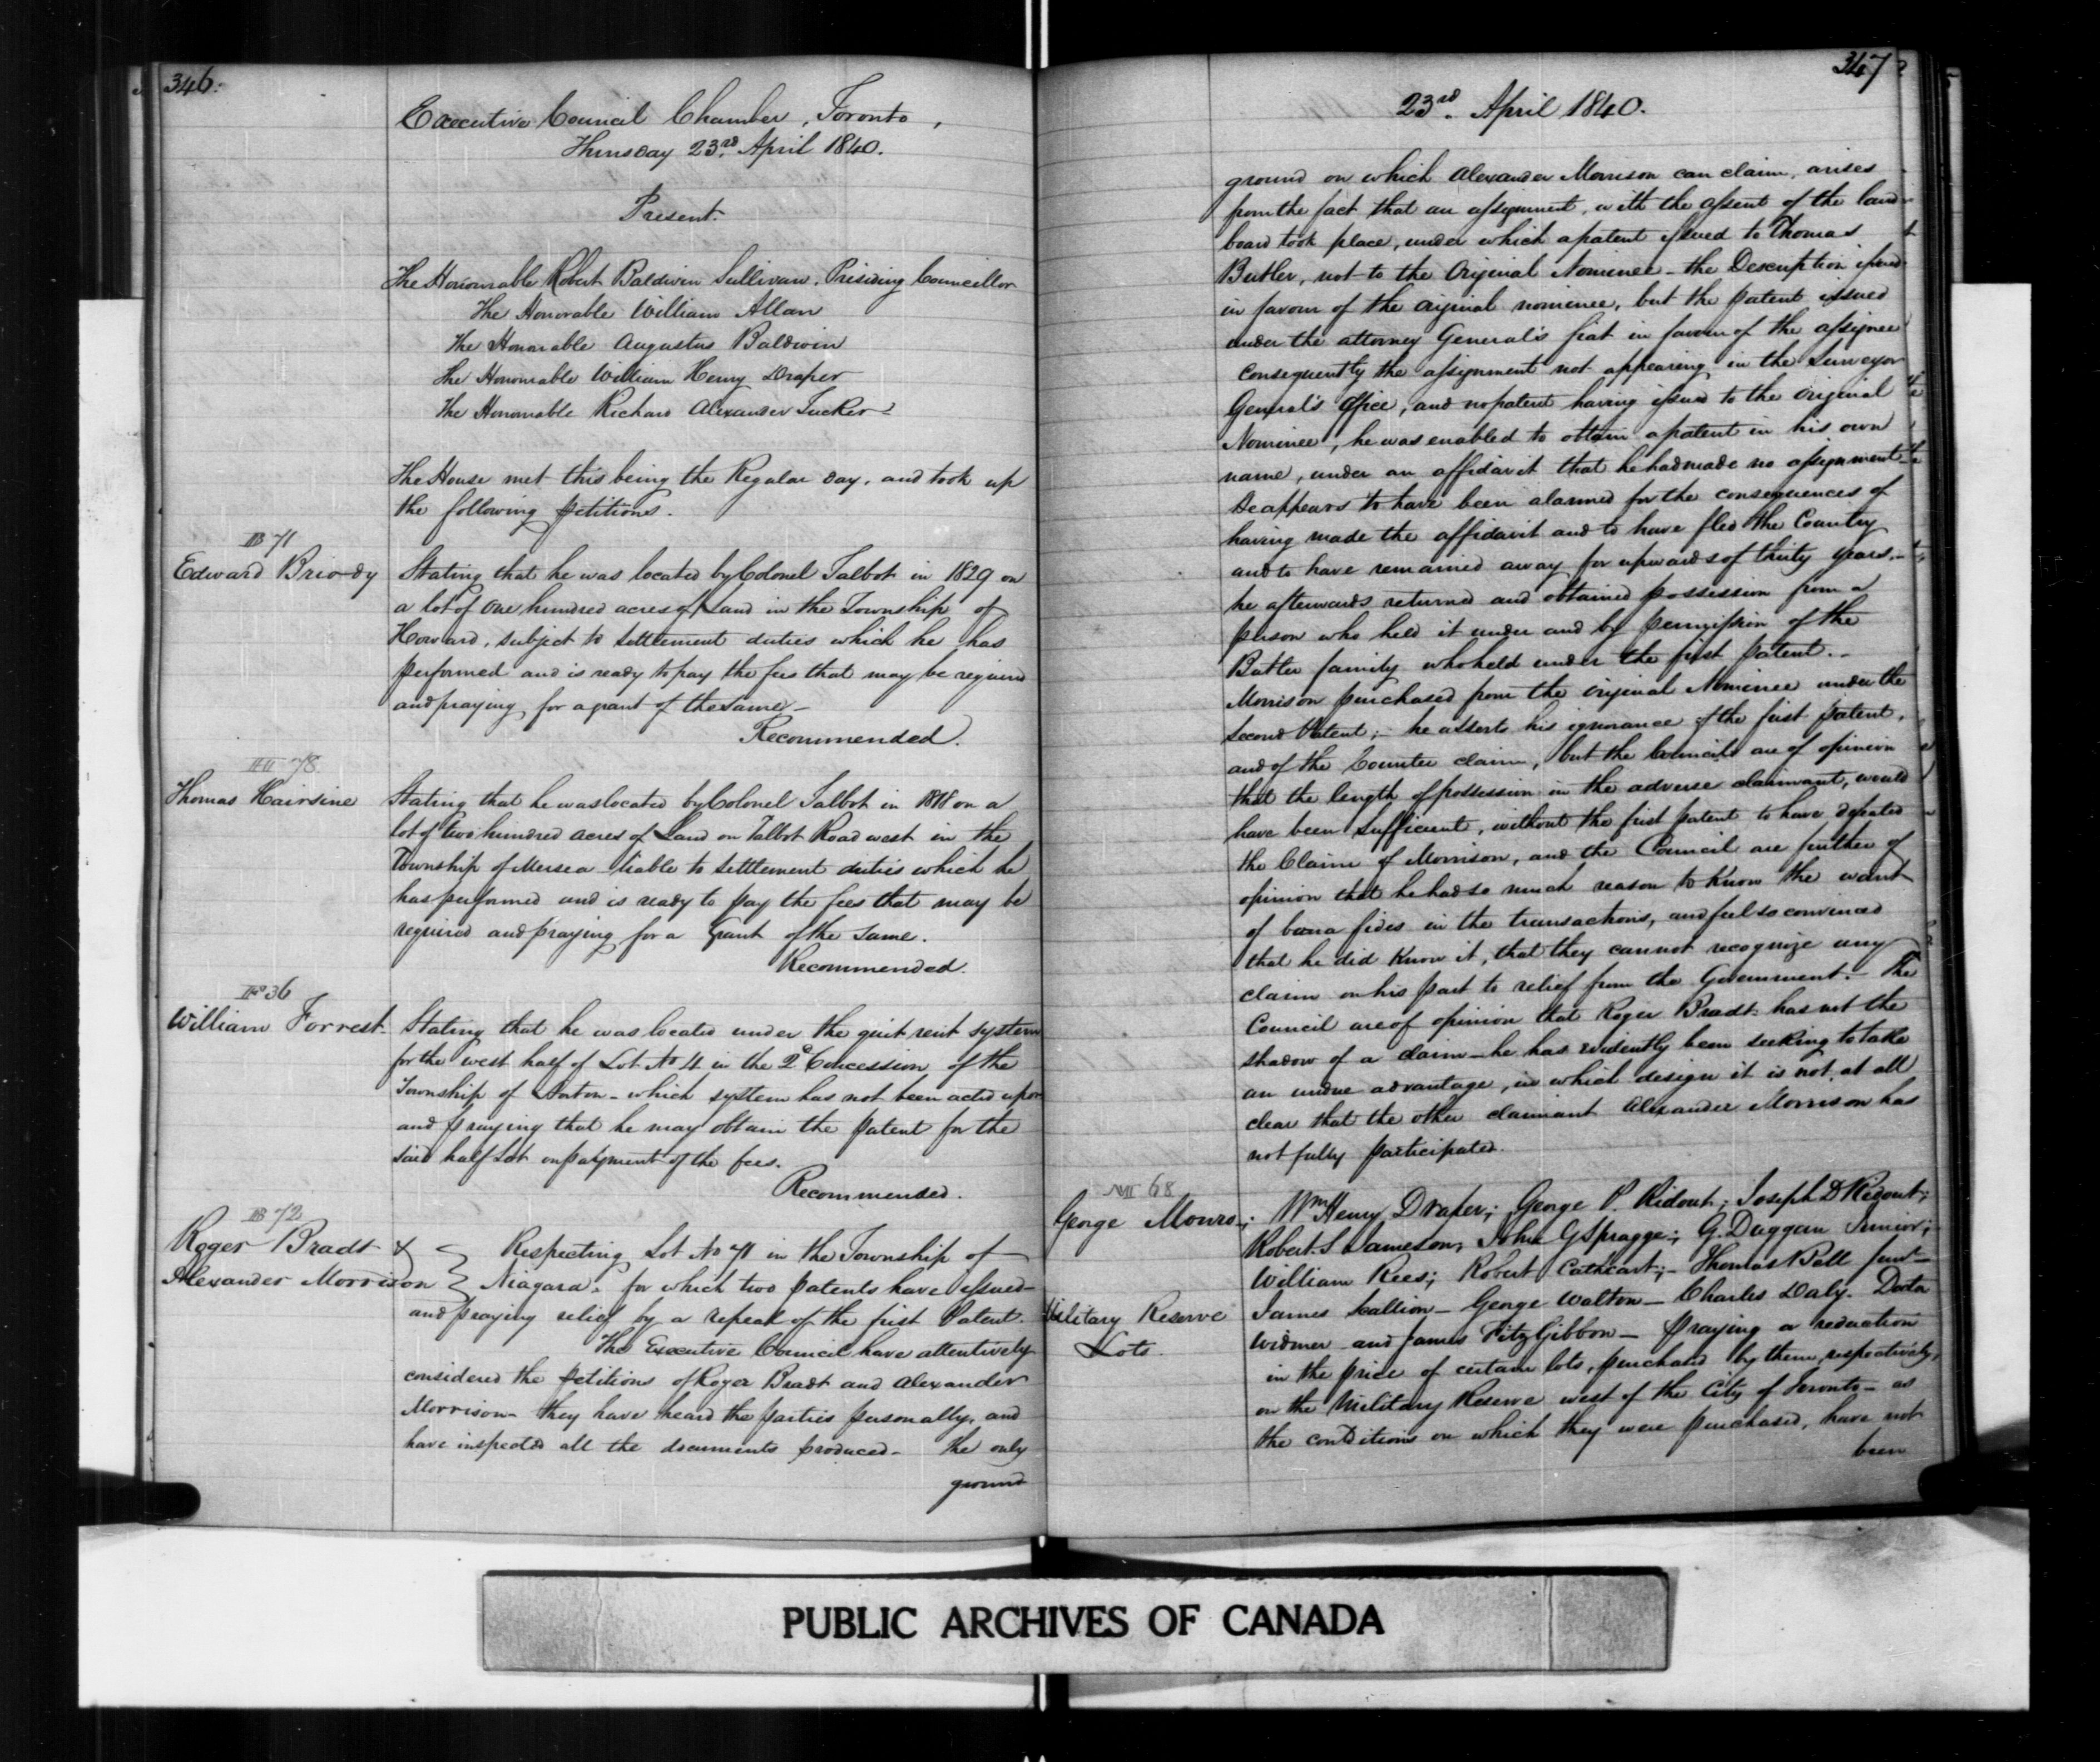 346.
Executive Council Chamber, Toronto,
Thursday 23rd April 1840.
Present.
The Honourable Robert Baldwin Sullivan, Presiding Councillor
The Honorable William Allan
The Honorable Augustus Baldwin
The Honourable William Henry Draper
The Honourable Richard Alexander Tucker
The House met this being the Regular day, and took up
the following petitions.
B 71
Edward Briody
Stating that he was located by Colonel Talbot in 1829 on
a lot of One hundred acres of Land in the Township of
Howard, subject to settlement duties which he has
performed and is ready to pay the fees that may be required
and praying for a grant of the same—
Recommended.
H 78
Thomas Hairsine
Stating that he was located by Colonel Talbot in 1818 on a
lot of two hundred acres of Land on Talbot Road west in the
Township of Mersea liable to settlement duties which he
has performed and is ready to pay the fees that may be
required and praying for a Grant of the same.
Recommended.
F 36
William Forrest
Stating that he was located under the quit rent system
for the west half of Lot No 4 in the 2d Concession of the
Township of — which system has not been acted upon
and praying that he may obtain the patent for the
said half Lot on payment of the fees.
Recommended.
B 72
Roger Bradt &
Alexander Morrison
Respecting Lot No 71 in the Township of
Niagara, for which two patents have issued
and praying relief by a repeal of the first Patent.
The Executive Council have attentively
considered the petitions of Roger Bradt and Alexander
Morrison— they have heard the parties personally, and
have inspected all the documents produced— The only
ground
347
23rd. April 1840.
ground on which Alexander Morrison can claim, arises
from the fact that an assignment, with the assent of the land
board took place, under which a patent issued to Thomas
Butler, not to the Original Nominee— the Description issued
in favour of the original nominee, but the patent issued
under the attorney General's fiat in favour of the assignee
Consequently the assignment not appearing in the Surveyor
General's Office, and no patent having issued to the original
Nominee, he was enabled to obtain a patent in his own
name, under an affidavit that he had made no assignment—
He appears to have been alarmed for the consequences of
having made the affidavit and to have fled the Country
and to have remained away for upwards of thirty years.—
he afterwards returned and obtained possession from a
person who held it under and by permission of the
Butler family who held under the first patent.—
Morrison purchased from the original Nominee under the
second Patent;— he asserts his ignorance of the first patent,
and of the Counter claim, but the Council are of opinion
that the length of possession in the adverse claimant, would
have been sufficient, without the first patent to have defeated
the Claim of Morrison, and the Council are further of
opinion that he had so much reason to know the want
of bona fides in the transactions, and feel so convinced
that he did know it, that they cannot recognize any
claim on his part to relief from the Government.— The
Council are of opinion that Roger Bradt has not the
shadow of a claim— he has evidently been seeking to take
an undue advantage, in which design it is not at all
clear that the other claimant Alexander Morrison has
not fully participated.
M 68
George Monro;
Military Reserve
Lots.
Wm Henry Draper; George P. Ridout; Joseph D Ridout;
Robert S Jameson, John G Spragge; G. Duggan Junior;
William Rees; Robert Cathcart;— Thomas Bell Junr—
James — George Walton— Charles Daly— Doctor
Widmer and James FitzGibbon— Praying a reduction
in the price of certain lots, purchased by them respectively,
on the Military Reserve west of the City of Toronto— as
the conditions on which they were purchased, have not
been
PUBLIC ARCHIVES OF CANADA